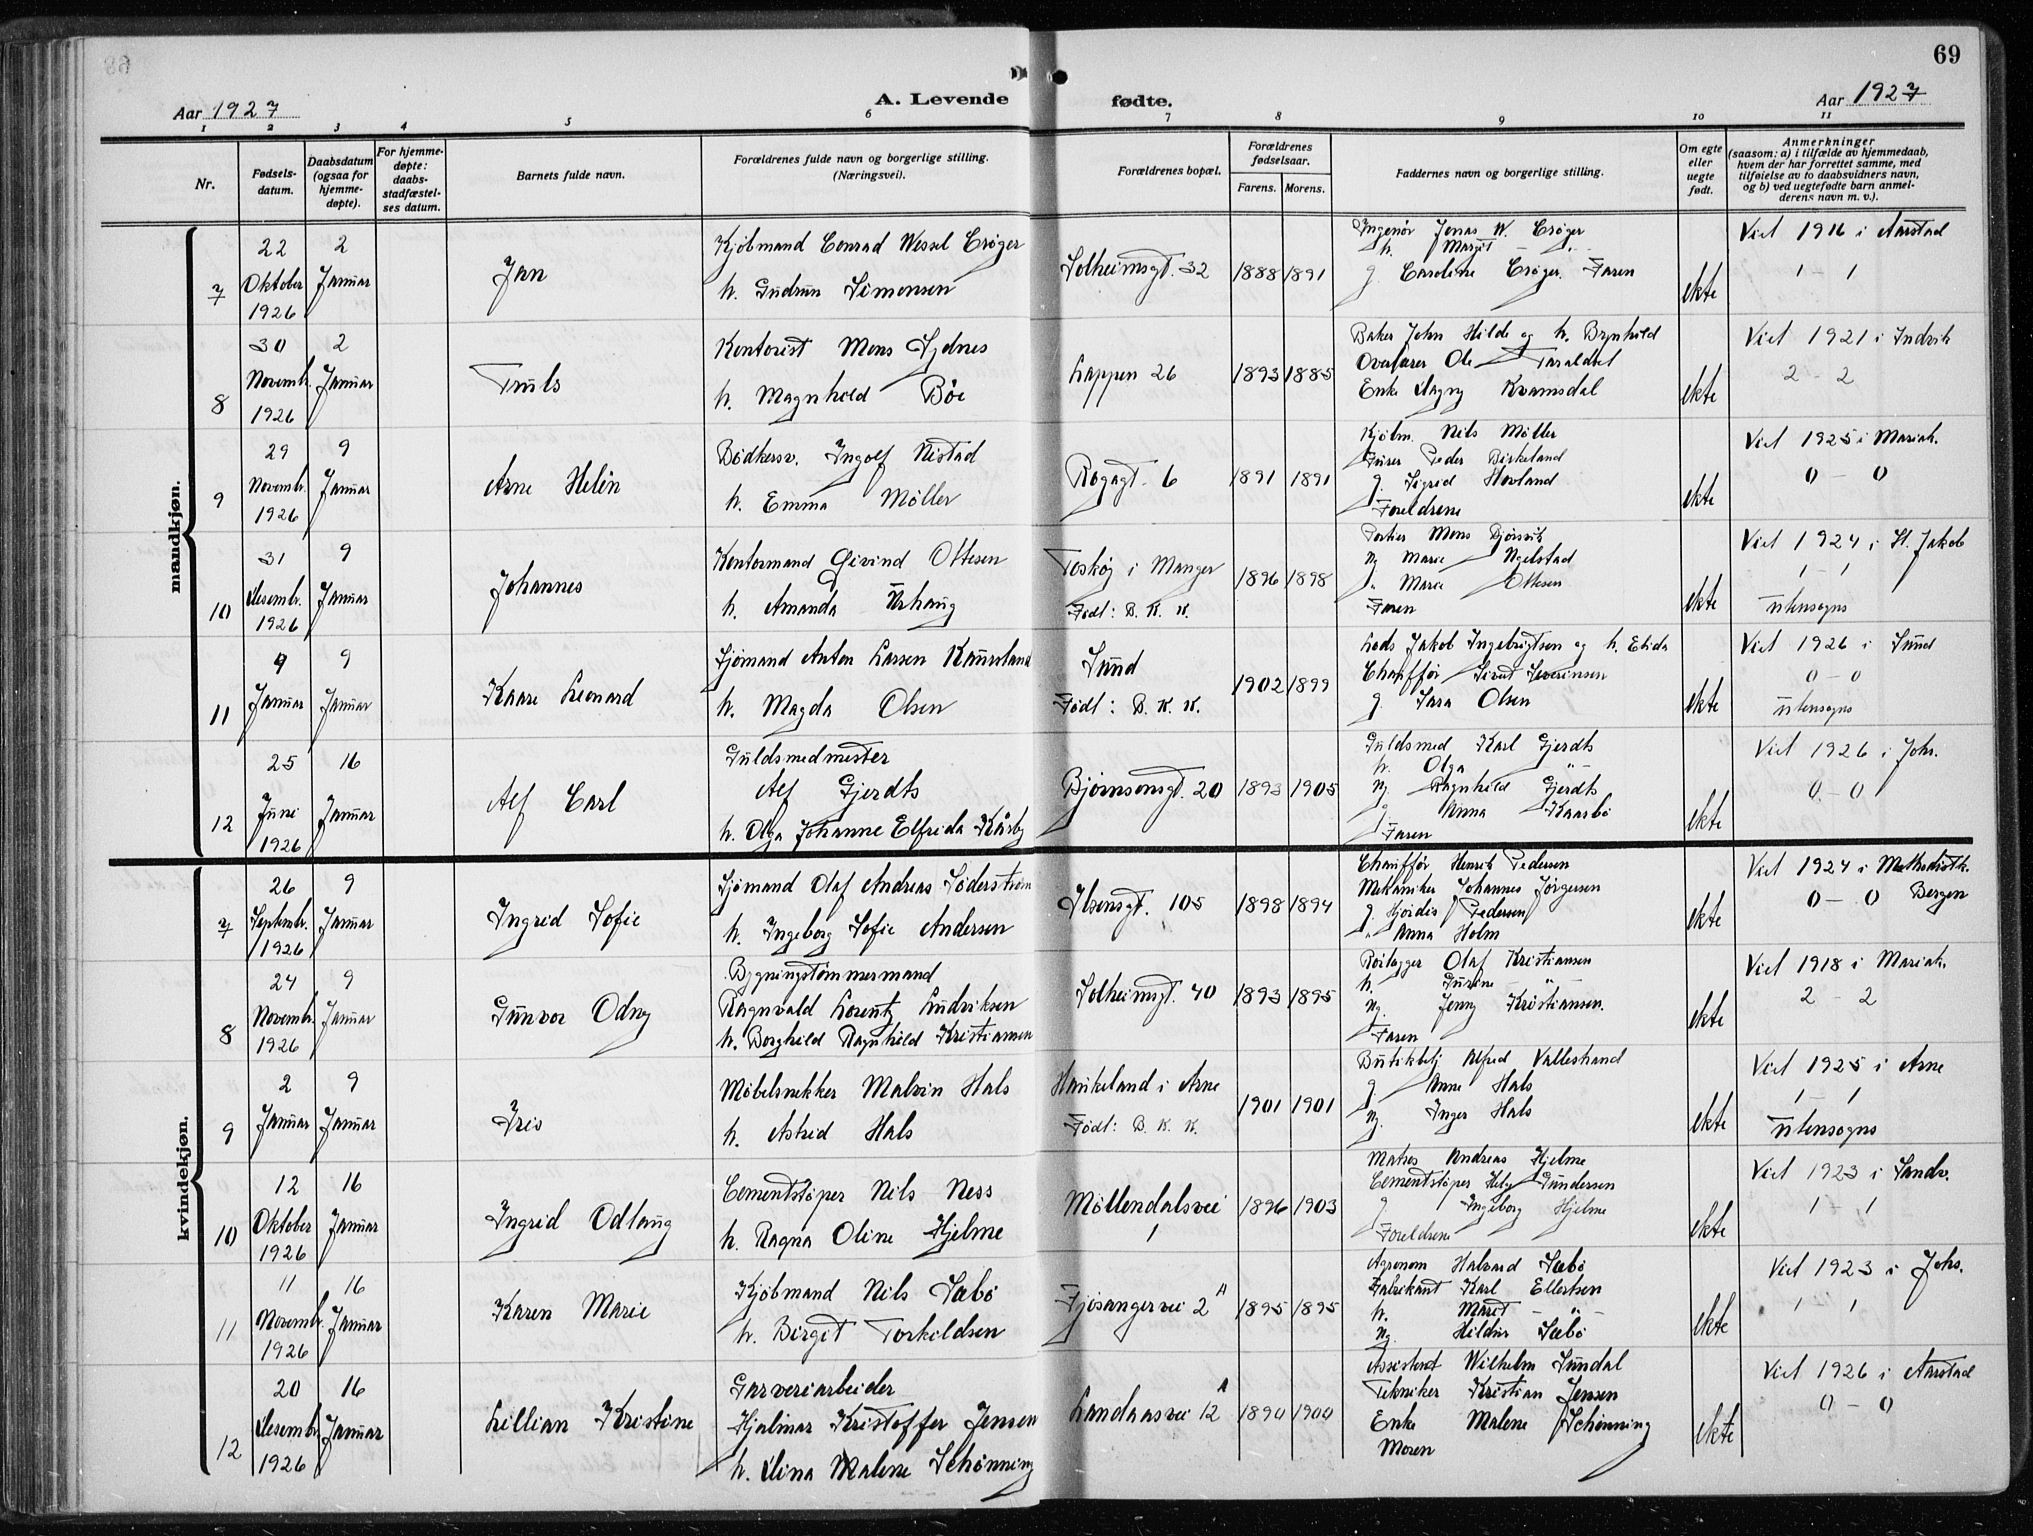 69
Aar 1927
A. Levende fødte.
Aar 1927
1 2 3 4 5 6 7 8 9 10 11
Nr.
Fødsels-
datum.
Daabsdatum
(ogsaa for
hjemme-
døpte).
For hjemme-
døpte:
daabs-
stadfæstel-
ses datum.
Barnets fulde navn.
Forældrenes fulde navn og borgerlige stilling.
(Næringsvei).
Forældrenes bopæl.
Forældrenes
fødselsaar.
Farens. Morens.
Faddernes navn og borgerlige stilling.
Om egte
eller
uegte
født.
Anmerkninger
(saasom: a) i tilfælde av hjemmedaab,
hvem der har forrettet samme, med
tilføielse av to daabsvidners navn,
og b) ved uegtefødte barn anmel-
derens navn m. v.).
mandkjøn.
7
22
Oktober
1926
2
Januar
Jan
Kjøbmand Conrad Wessel Crøger
h. Gudrun Simonsen
Solheimsgt. 32
1888 1891
Ingeniør Jonas W. Crøger
h. Margit
g. Caroline Crøger. Faren
ekte
Viet 1916 i Aarstad
1 - 1
8
30
Novembr.
1926
2
Januar
Truls
Kontorist Mons Sydnes
h. Magnhild Böe
Lappen 26
1893 1885
Baker John Hilde og h. Brynhild
Ole Taraldset
Enke Dagny Kvamsdal
ekte
Viet 1921 i Indvik
2 - 2
9
29
Novembr.
1926
9
Januar
Arne Helin
Bödkersv. Ingolf Nistad
h. Emma Møller
1891 1891
Kjøbm. Nils Møller
Peder Birkeland
g. Sigrid Hovland
Foreldrene
ekte
Viet 1925 i Mariak.
0 - 0
10
31
Desembr.
1926
9
Januar
Johannes
Kontormand Øivind Ottesen
h. Amanda Urhaug
Toskøy i Manger
Født: B. K. K.
1896 1898
Mons
Marie
Marie Ottesen
Faren
ekte
Viet 1924 i St. Jakob
1 - 1
utensogns
11
9
Januar
9
Januar
Kaare Leonard
Sjømand Anton Larsen Kausland
h. Magda Olsen
Sund
Født: B. K. K.
1902 1899
Lods Jakob Ingebrigtsen og h. Elida
Chauffør Sivert Severinsen
g. Sara Olsen
ekte
Viet 1926 i Sund
0 - 0
utensogns
12
25
Juni
1926
16
Januar
Alf Carl
Guldsmedmester
Alf Gjerdts
h. Olga Johanne Elfrida Kårby
Bjørnsonsgt. 20
1893 1905
Guldsmed Karl Gjerdts
h. Olga - " -
Ug. Ragnhild Gjerdts
g Anna Kaarbø
Faren
ekte
Viet 1926 i Johs.
0 - 0
kvindekjøn.
7
26
Septembr.
1926
9
Januar
Ingrid Sofie
Sjømand Olaf Andreas Søderstrøm
h. Ingeborg Sofie Andersen
Ibsensgt. 105
1898 1894
Chauffør Henrik Pedersen
Mekaniker Johannes Jørgensen
g. Hjørdis Pedersen
" Anna Holm
ekte
Viet 1924 i Methodistk.
0 - 0 Bergen
8
24
Novembr.
1926
9
Januar
Gunvor Odny
Bygningstømmermand
Ragnvald Lorentz Ludviksen
h. Borghild Ragnhild Kristiansen
Solheimsgt. 40
1893 1895
Rørlægger Olaf Kristiansen
h. Gurine - " -
Ug. Jenny Kristiansen.
Faren
ekte
Viet 1918 i Mariak.
2 - 2
9
2
Januar
9
Januar
Iris
Møbelsnekker Malvin Hals
h. Astrid Hals
Haukeland i Arne
Født: B. K. K.
1901 1901
Butikkbetj. Alfred Vallestrand
g. Anne Hals
Ug. Inger Hals
ekte
Viet 1925 i Arne
1 - 1
utensogns
10
12
Oktober
1926
16
Januar
Ingrid Odlaug
Cementstøper Nils Ness
h. Ragna Oline Hjelme
Møllendalsvei
1
1896 1903
Matros Andreas Hjelme
Cementstøper Helg Gundersen
g Ingeborg Hjelme
Foreldrene
ekte
Viet 1923 i Sandv.
1 - 1
11
11
Novembr.
1926
16
Januar
Karen Marie
Kjøbmand Nils Sæbø
h. Birgit Torkildsen
Fjøsangervei 2 A
1895 1895
Agronom Halvard Sæbø
Fabrikant Karl Ellertsen
h. Marit - " -
Ug. Hildur Sæbø
ekte
Viet 1923 i Johs.
1 1
12
20
Desembr.
1926
16
Januar
Lillian Kristine
Garveriarbeider
Hjalmar Kristoffer Jensen
h. Dina Malene Schønning
Landaasvei 12 A
1890 1900
Assistent Wilhelm Sundal
Tekniker Kristian Jensen
Enke Malene Schønning
Moren
ekte
Viet 1926 i Aarstad
0 - 0